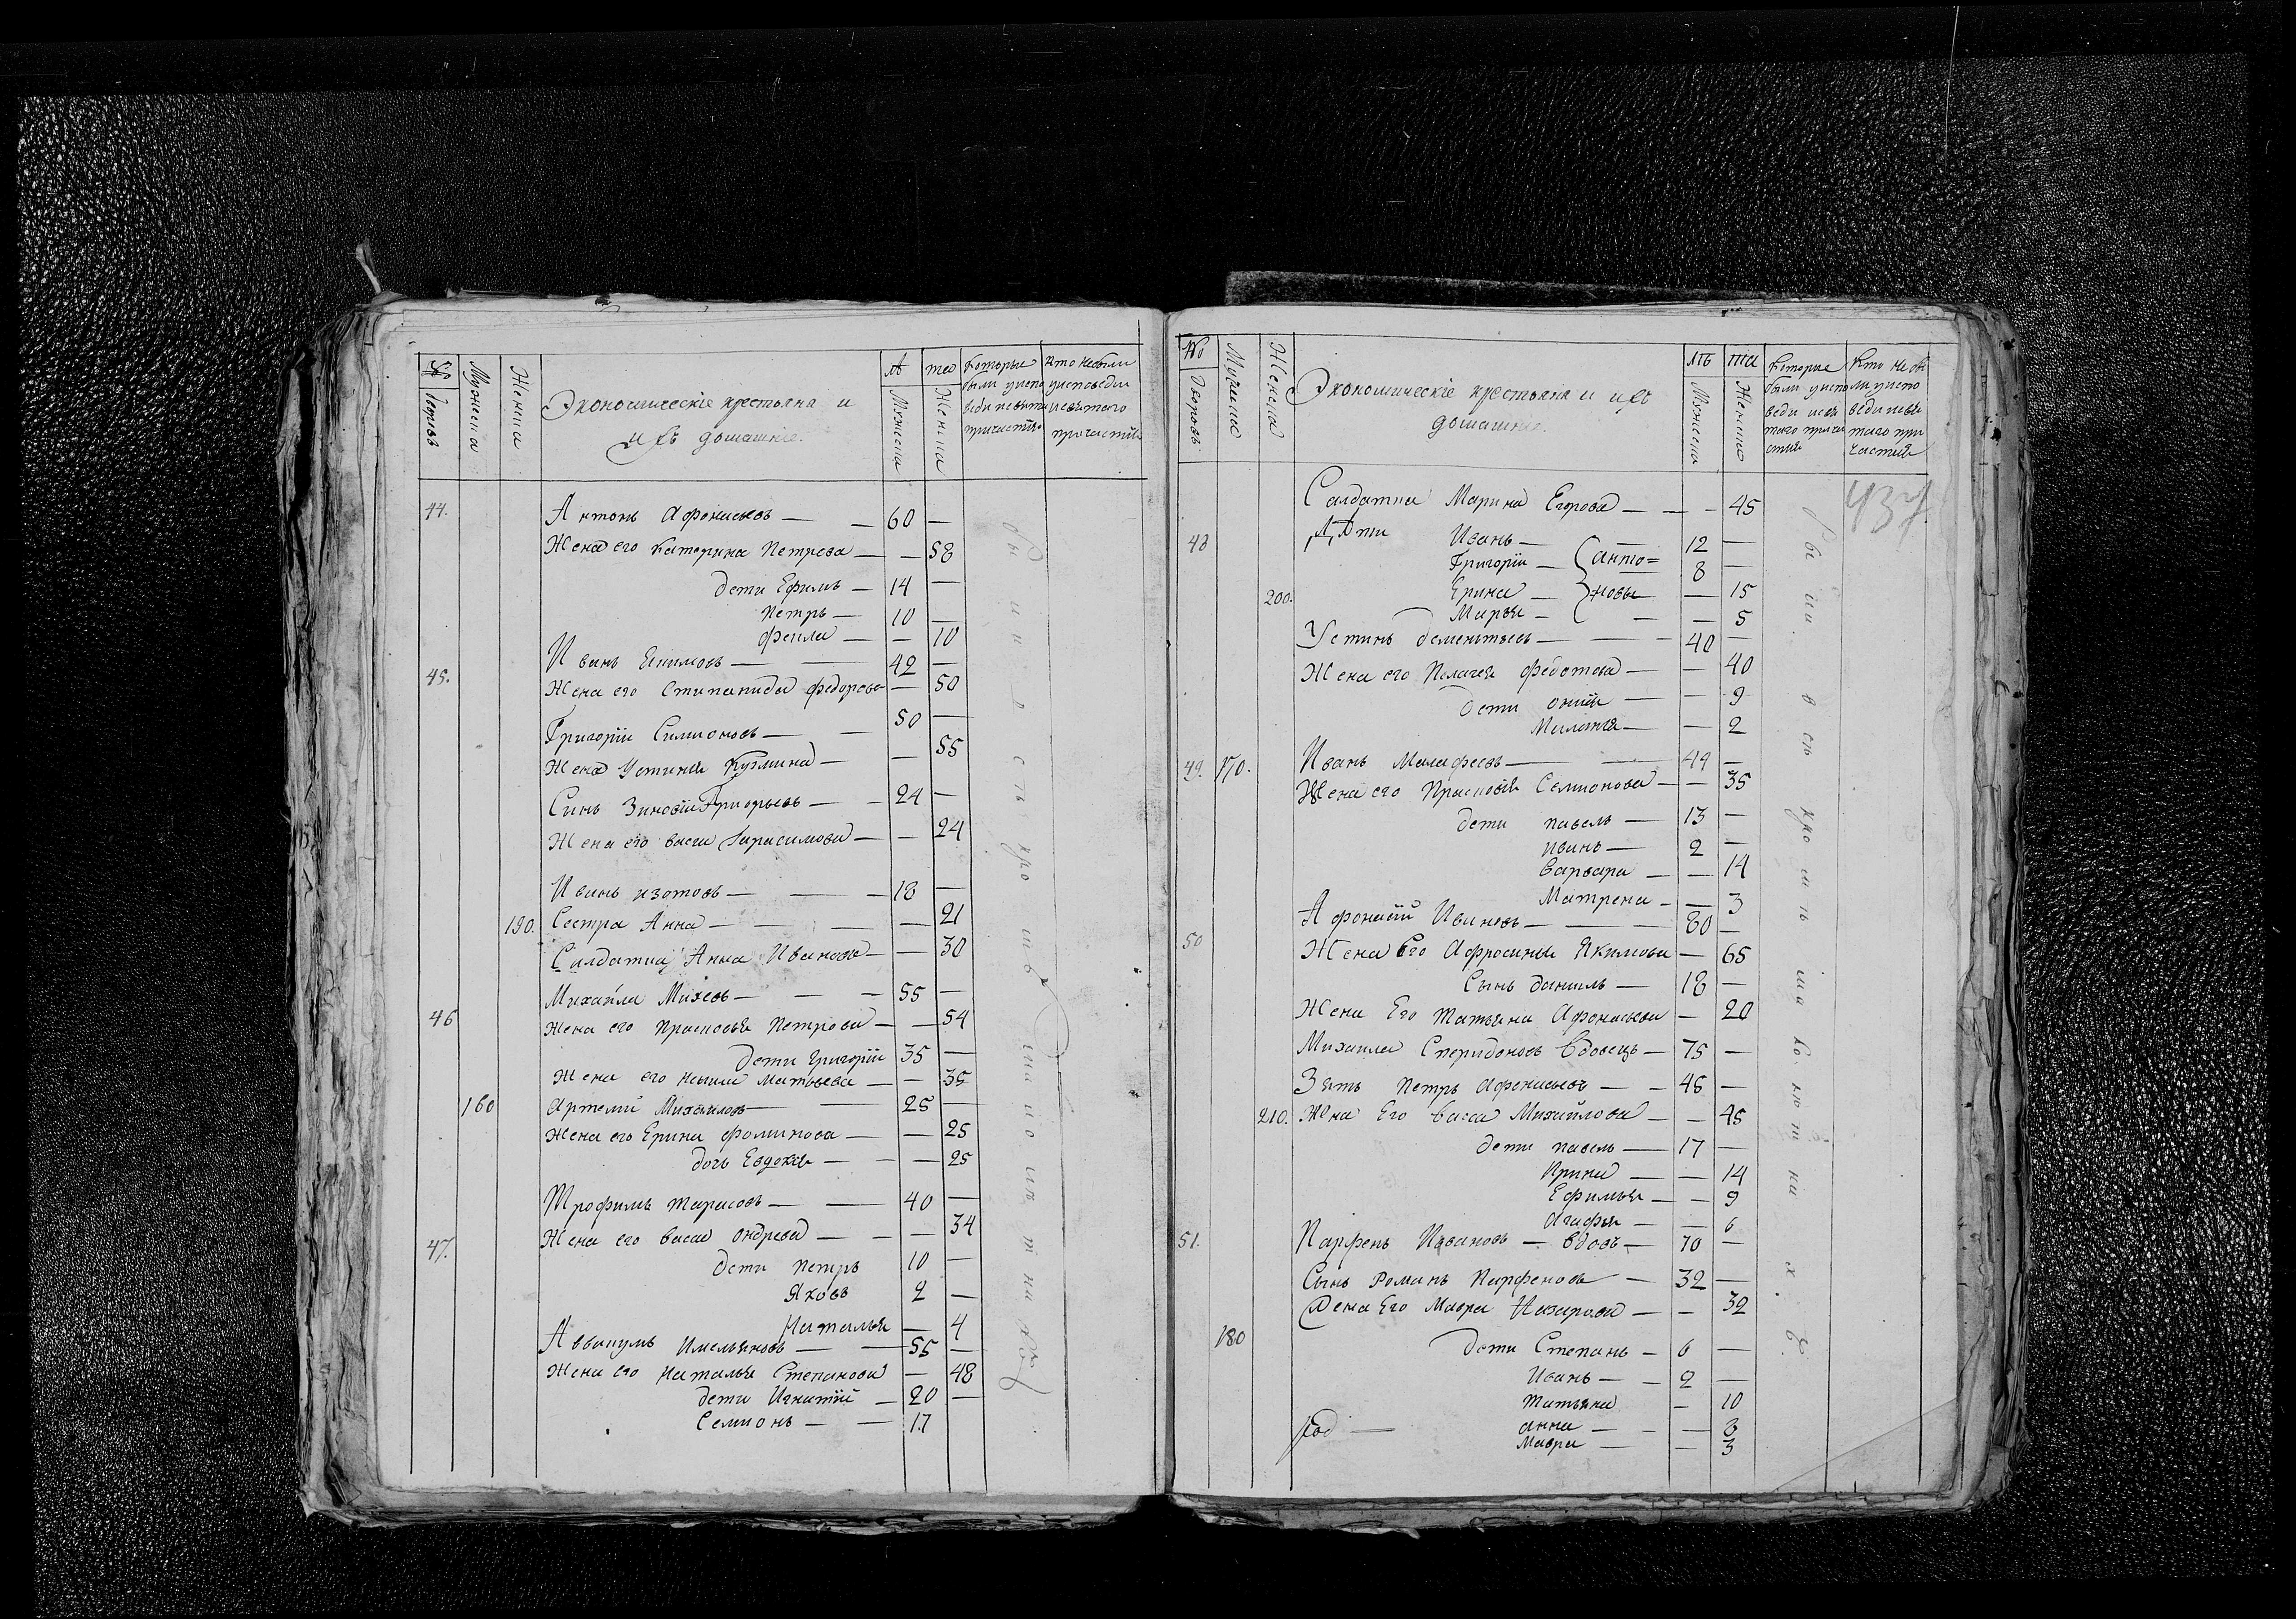 № дворовъ
Мужеска
Женска
Экономическіе крестьяна и
ихъ домашніе.
Лѣ
та
Мужеска
Женска
Которые
были у испо
веди и свята
причастія
Кто не были
у исповеди
и святого
причастія
44. Антонъ Афонасьевъ — — 60 —
Жена его Катерина Петрова — — 58
дети Ефимъ — 14 —
Петръ — 10 —
Фекла — — 10
45. Иванъ Екимовъ — — 42 —
Жена его Стипанида Федорова — 50
Григорій Симионовъ — — 50 —
Жена Устинья Кузмина — — 55
Синъ Зиновій Григорьевъ — — 24 —
Жена его Васса Гарасимова — — 24
Иванъ Изотовъ — — 18 —
190. Сестра Анна — — — 21
Салдатка Анна Иванова — — 30
46 Михайла Михевъ — — — 55 —
Жена его Прасковья Петрова — — 54
дети Григорій 35 —
Жена его Матвеева — — 35
160 Артемій Михайловъ — — 25 —
Жена его Ерина Фоминова — — 25
дочь Евдокія — — — 25
47. Трофимъ Тарасовъ — — 40 —
Жена его Васса Ондрева — — — 34
дети Петръ 10 —
Яковъ 2 —
Наталья — 4
Аввакумъ Имельяновъ — — 55 —
Жена его Наталья Степанова — 48
дети Игнатій — 20 —
Семионъ — — 17
№ дворовъ
Мужеска
Женска
Экономическіе крестьяна и ихъ
домашніе.
лѣ
та
Мужеска
Женска
Которые
были у испо
веди и свя
того прича
стія
Кто не бы
ли у испо
веди и свя
того при
частія
437
Салдатка Марина Егорова — — — 45
48 Дѣти Иванъ — 12 —
Григорій — Анто= 8 —
200. Ерина — новы — 15
Марья — — — 5
Устинъ Дементьевъ — — — 40 —
Жена его Пелагея Федотова — — 40
дети — — 9
— — 2
49. 170. Иванъ Малафеевъ — — 44 —
Жена его Прасковія Семионова — — 35
дети Павелъ — 13 —
Иванъ — 2 —
Варвара — — 14
Матрена — — 3
50 Афонасій Ивановъ — — — 80 —
Жена Его Афросинья Якимова — 65
Сынъ Данилъ — 18 —
Жена Его Татьяна Афонасьева — 20
Михаила Спиридоновъ вдовецъ — 75 —
Зять Петръ Афонасьевъ — — 45 —
210. Жена Его Васса Михайлова — — 45
дети Павелъ — 17 —
Ирина — — 14
Ефимья — — 9
Агафья — — 6
51. Парфенъ Ивановъ — вдовъ — 70 —
Сынъ Романъ Парфеновъ — 32 —
Жена Его Мавра Назарова — — 32
180 дети Степанъ — 6 —
Иванъ — — 2 —
Татьяна — 10
Анна — — — 8
Мавра — — 3